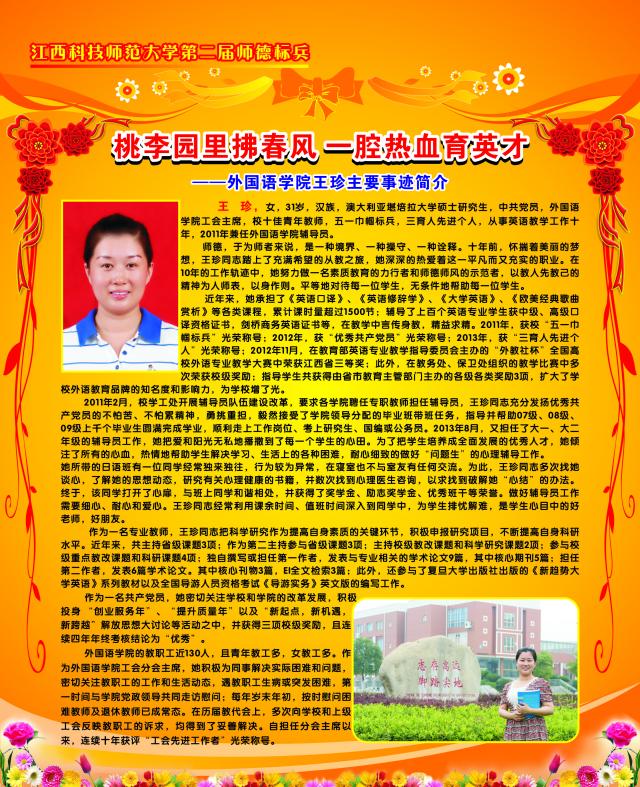 江西科技师范大学第二届师德标兵
桃李园里拂春风 一腔热血育英才
——外国语学院王珍主要事迹简介
王 珍，女，31岁，汉族，澳大利亚堪培拉大学硕士研究生，中共党员，外国语
学院工会主席，校十佳青年教师，五一巾帼标兵，三育人先进个人，从事英语教学工作十
年，2011年兼任外国语学院辅导员。
师德，于为师者来说，是一种境界、一种操守、一种诠释。十年前，怀揣着美丽的梦
想，王珍同志踏上了充满希望的从教之旅，她深深的热爱着这一平凡而又充实的职业。在
10年的工作轨迹中，她努力做一名素质教育的力行者和师德师风的示范者，以教人先教己的
精神为人师表，以身作则。平等地对待每一位学生，无条件地帮助每一位学生。
近年来，她承担了《英语口译》、《英语修辞学》、《大学英语》、《欧美经典歌曲
赏析》等各类课程，累计课时量超过1500节；辅导了上百个英语专业学生获中级、高级口
译资格证书，剑桥商务英语证书等，在教学中言传身教，精益求精。2011年，获校“五一巾
帼标兵”光荣称号；2012年，获“优秀共产党员”光荣称号；2013年，获“三育人先进个
人”光荣称号；2012年11月，在教育部英语专业教学指导委员会主办的“外教社杯”全国高
校外语专业教学大赛中荣获江西省三等奖；此外，在教务处、保卫处组织的教学比赛中多
次荣获校级奖励；指导学生共获得由省市教育主管部门主办的各级各类奖励3项，扩大了学
校外语教育品牌的知名度和影响力，为学校增了光。
2011年2月，校学工处开展辅导员队伍建设改革，要求各学院聘任专职教师担任辅导员，王珍同志充分发扬优秀共
产党员的不怕苦、不怕累精神，勇挑重担，毅然接受了学院领导分配的毕业班带班任务，指导并帮助07级、08级、
09级上千个毕业生圆满完成学业，顺利走上工作岗位、考上研究生、国编或公务员。2013年8月，又担任了大一、大二
年级的辅导员工作，她把爱和阳光无私地播撒到了每一个学生的心田。为了把学生培养成全面发展的优秀人才，她倾
注了所有的心血，热情地帮助学生解决学习、生活上的各种困难，耐心细致的做好“问题生”的心理辅导工作。
她所带的日语班有一位同学经常独来独往，行为较为异常，在寝室也不与室友有任何交流。为此，王珍同志多次找她
谈心，了解她的思想动态，研究有关心理健康的书籍，并数次找到心理医生咨询，以求找到破解她“心结”的办法。
终于，该同学打开了心扉，与班上同学和谐相处，并获得了奖学金、励志奖学金、优秀班干等荣誉。做好辅导员工作
需要细心、耐心和爱心。王珍同志经常利用课余时间、值班时间深入到同学中，为学生排忧解难，是学生心目中的好
老师，好朋友。
作为一名专业教师，王珍同志把科学研究作为提高自身素质的关键环节，积极申报研究项目，不断提高自身科研
水平。近年来，共主持省级课题3项；作为第二主持参与省级课题3项；主持校级教改课题和科学研究课题2项；参与校
级重点教改课题和科研课题4项；独自撰写或担任第一作者，发表与专业相关的学术论文9篇，其中核心期刊5篇；担任
第二作者，发表6篇学术论文。其中核心刊物3篇，EI全文检索3篇；此外，还参与了复旦大学出版社出版的《新趋势大
学英语》系列教材以及全国导游人员资格考试《导游实务》英文版的编写工作。
作为一名共产党员，她密切关注学校和学院的改革发展，积极
投身“创业服务年”、“提升质量年”以及“新起点，新机遇，
新跨越”解放思想大讨论等活动之中，并获得三项校级奖励，且连
续四年年终考核结论为“优秀”。
外国语学院的教职工近130人，且青年教工多，女教工多。作
为外国语学院工会分会主席，她积极为同事解决实际困难和问题，
密切关注教职工的工作和生活动态，遇教职工生病或突发困难，第
一时间与学院党政领导共同走访慰问；每年岁末年初，按时慰问困
难教师及退休教师已成常态。在历届教代会上，多次向学校和上级
工会反映教职工的诉求，均得到了妥善解决。自担任分会主席以
来，连续十年获评“工会先进工作者”光荣称号。
志存高远
脚踏实地